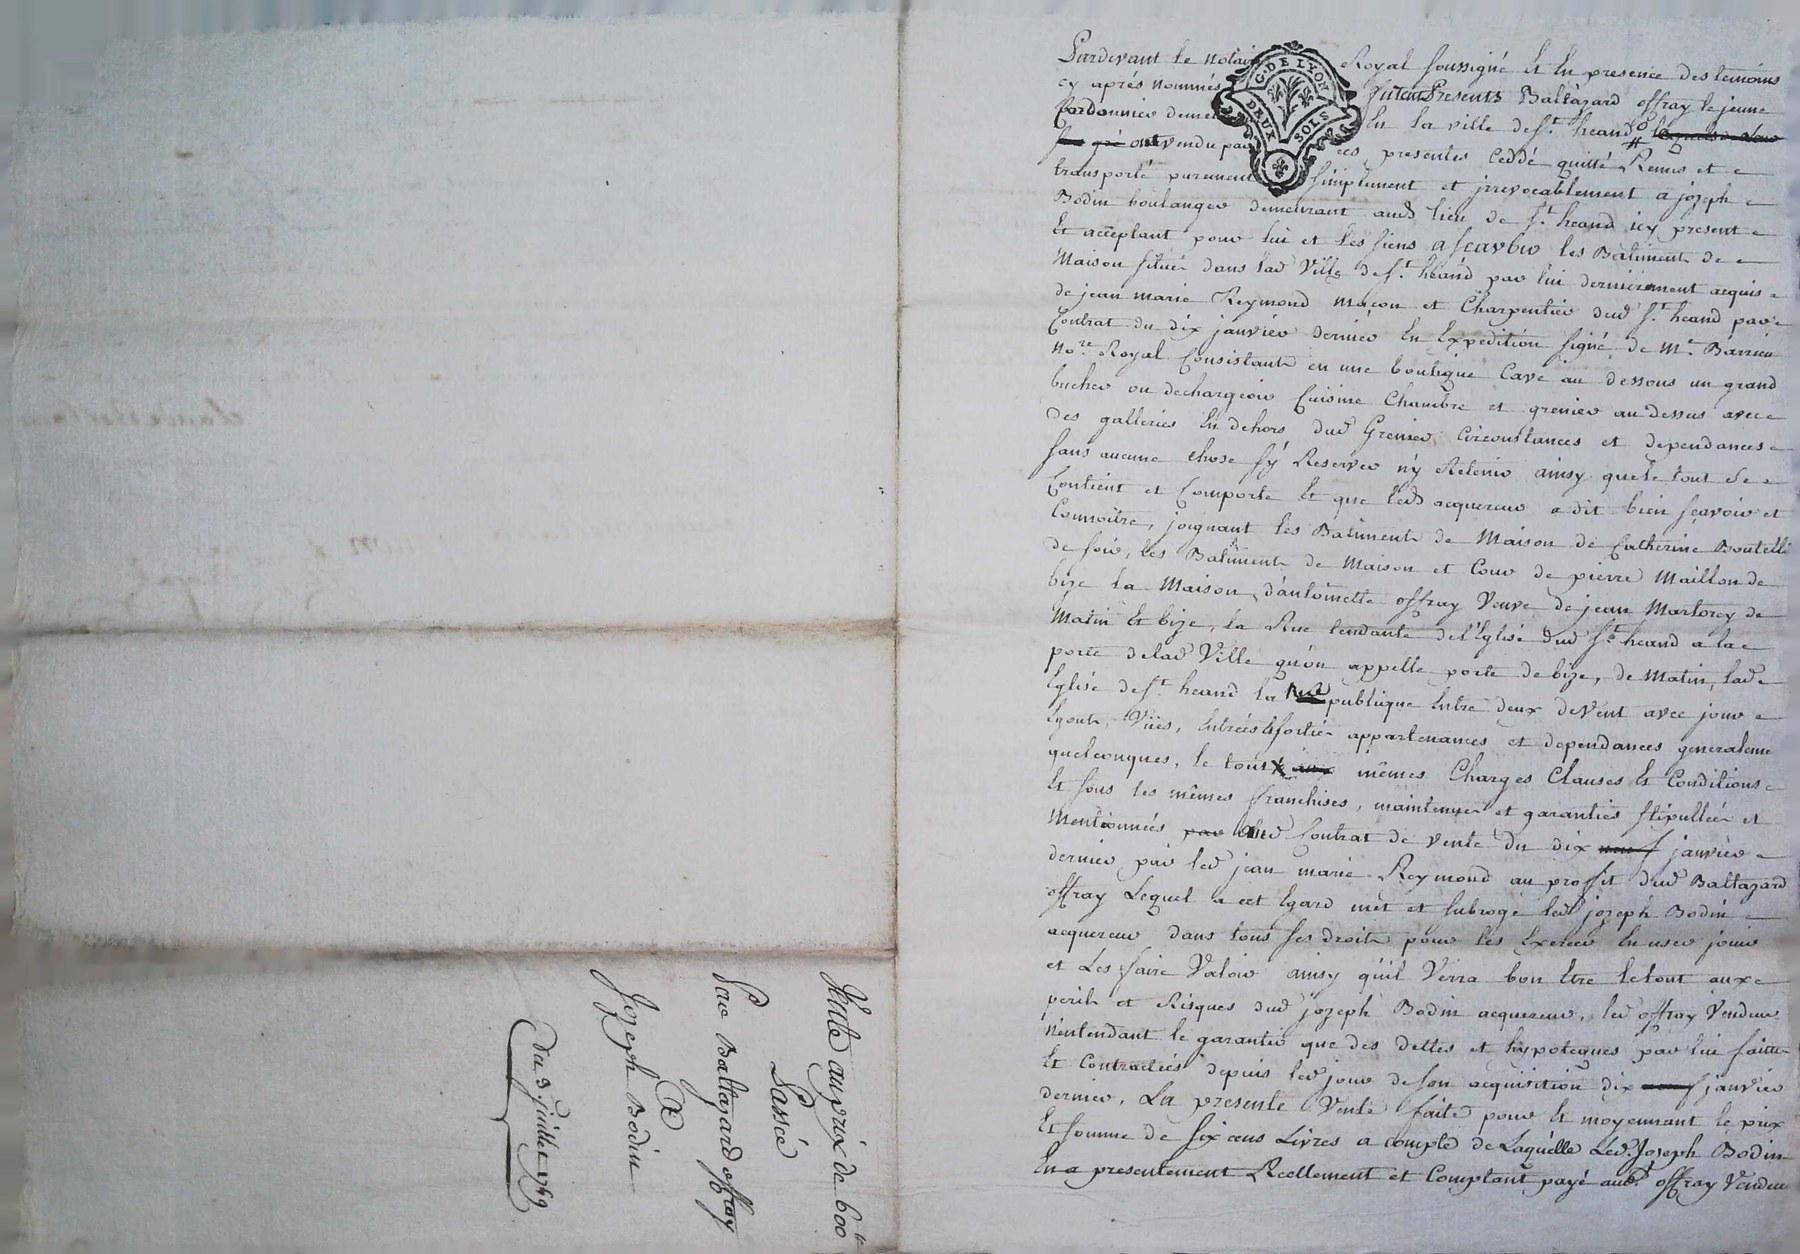 Pardevant le notaire Royal soussigné Et En presence des temoins
cy aprés nommés futent Presents Baltazard offray le jeune
Cordonnier demeu En la ville de St. heand
ont vendu par ces presentes Ceddé quitté Remis et
transporté purement simplement et jrrevocablement a jozeph
Bodin boulanger demeurant aud lieu de St. heand icy present
Et acceptant pour lui et les siens a scavoir les Batiments de
Maison située dans lad Ville de St. héand par lui dernierement acquis
de jean marie Reymond maçon et Charpentier dud St. heand par
Contrat du dix janvier dernier En Expedition signé de Me. Barrieu
nore Royal Consistant en une boutique Cave au dessous un grand
bucher ou dechargeoir Cuisine Chambre et grenier au dessus avec
des galleries En dehors dud Grenier, Circonstances et dependances
sans aucune chose s'y Reserver n'y Retenir ainsy que le tout se
Contient et Comporte Et que led acquereur a dit bien sçavoir et
Connoitre, joignant les Batiments de Maison de Catherine Boutelli
de soir, les Batiments de Maison et Cour de pierre Maillon de
bize la Maison d'antoinette offray Veuve de jean Martorey de
Matin Et bize, la Rue tendante de l'Eglise dud St. heand a la
porte de lad Ville qu'on appelle porte de bize, de Matin, lad
Eglise de St. heand la Rue publique Entre deux de Vent avec jour
Egouts, Vües, Entrées & sorties appartenances et dependances generaleme
quelconques, le tout aux mêmes Charges Clauses Et Conditions
Et sous les mêmes franchises, maintenues et garanties stipullées et
Mentionnées par aud Contrat de vente du dix neuf janvier
dernier par led jean marie Reymond au proffit dud Baltazard
offray Lequel a cet Egard met et subroge led jozeph Bodin
acquereur dans tous ses droits pour les Exercer En user jouir
et Les faire Valoir ainsy qu'il Verra bon Etre le tout aux
perils et Risques dud jozeph Bodin acquereur, led offray Vendeur
n'entendant le garantir que des dettes et hypoteques par lui faittes
Et Contractées depuis led jour de son acquisition dix neuf janvier
dernier, La presente Vente faite pour Et moyennant le prix
Et somme de six cens Livres a compte de Laquelle Led. Joseph Bodin
En a presentement Reellement et Comptant payé aud. offray Vendeu
Vente au prix de 600 lt
Passée
Par Baltazard offray
A
Jozeph Bodin
du 3 juillet 1789